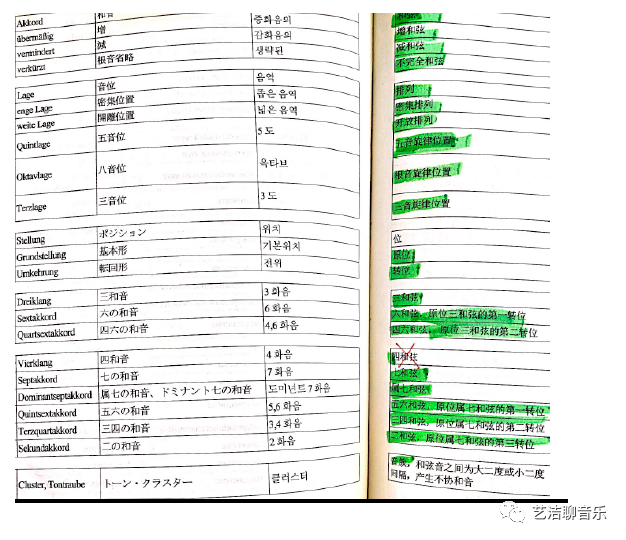 Akkord 和音 중화음의
übermäßig 増 증화음의
vermindert 減 감화음의
verkürzt 根音省略 생략된
增和弦
减和弦
不完全和弦
Lage 音位 음역
enge Lage 密集位置 좁은 음역
weite Lage 開離位置 넓은 음역
Quintlage 五音位 5 도
Oktavlage 八音位 옥타브
Terzlage 三音位 3 도
排列
密集排列
开放排列
五音旋律位置
根音旋律位置
三音旋律位置
Stellung ポジション 위치
Grundstellung 基本形 기본위치
Umkehrung 転回形 전위
位
原位
转位
Dreiklang 三和音 3 화음
Sextakkord 六の和音 6 화음
Quartsextakkord 四六の和音 4,6 화음
三和弦
六和弦，原位三和弦的第一转位
四六和弦，原位三和弦的第二转位
Vierklang 四和音 4 화음
Septakkord 七の和音 7 화음
Dominantseptakkord 属七の和音、ドミナント七の和音 도미넌트7화음
Quintsextakkord 五六の和音 5,6 화음
Terzquartakkord 三四の和音 3,4 화음
Sekundakkord 二の和音 2 화음
四和弦
七和弦
属七和弦
五六和弦，原位属七和弦的第一转位
三四和弦，原位属七和弦的第二转位
二和弦，原位属七和弦的第三转位
Cluster, Tontraube トーン・クラスター 클러스터
音族：和弦音之间为大二度或小二度
间隔，产生不协和音
艺洁聊音乐